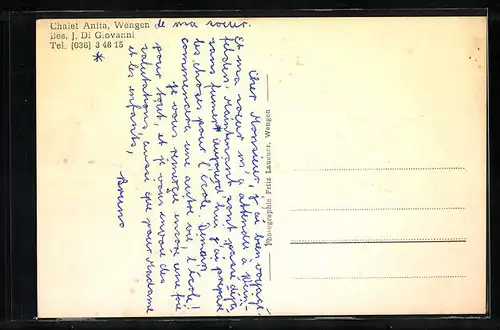 Chalet Anita, Wengen
Bes. J. Di Giovanni
Tel. (036) 3 46 15
*
Cher Monsieur, j'ai bien voyagé.
Et ma sœur m'a attendue à Klein-
felden. Maintenant sont passé déjà
sans fumer* aujourd'hui j'ai préparé
les choses pour l'école. Demain,
commencera une autre vie, l'école!
Je vous remercie encore une fois
pour tout, et je vous envoie des
salutations, aussi que pour Madame
et les enfants,
Bruno
de ma sœur.
Photographie Fritz Lauener, Wengen